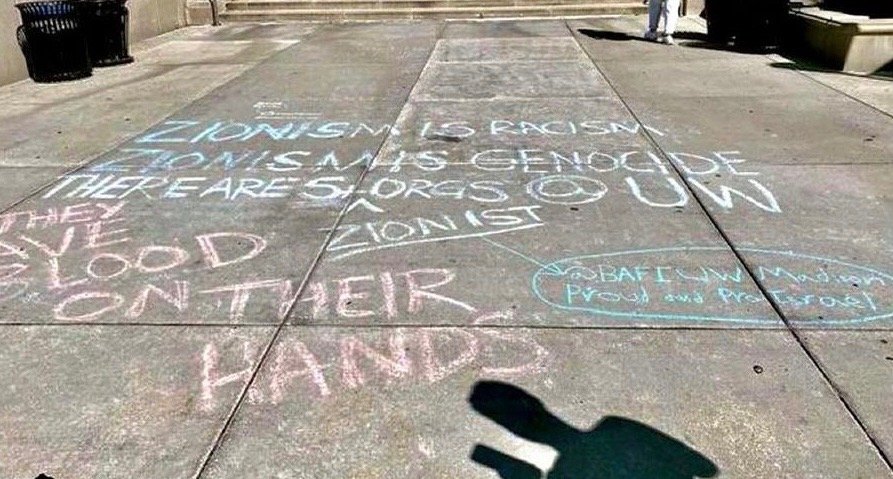 ZIONISM IS RACISM
ZIONISM IS GENOCIDE
THERE ARE ORGS @ UW
^
ZIONIST
THEY
AVE
BLOOD
ON THEIR
HANDS
@BAFIUW Madison
Proud and Pro Israel